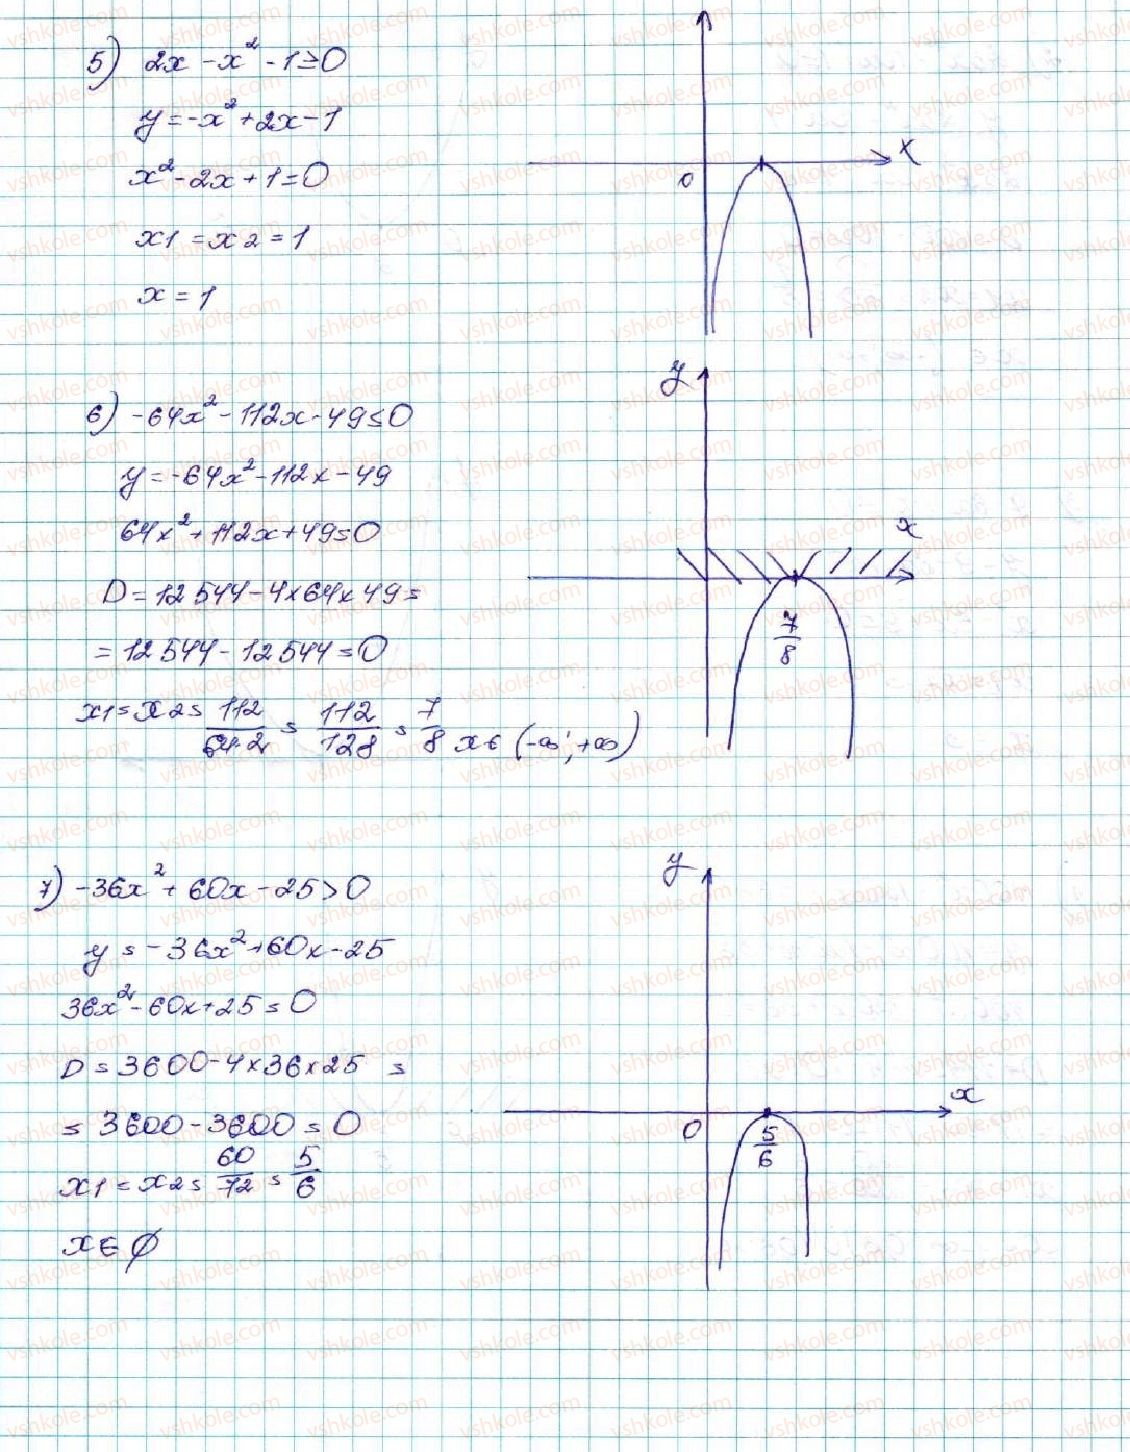 5) 2x - x² - 1 ≥ 0
y = -x² + 2x - 1
x² - 2x + 1 = 0
x1 = x2 = 1
x = 1
x
0
6) -64x² - 112x - 49 ≤ 0
y = -64x² - 112x - 49
64x² + 112x + 49 = 0
D = 12544 - 4×64×49 =
= 12544 - 12544 = 0
x1 = x2 = 112/64·2 = 112/128 = 7/8 x ∈ (-∞; +∞)
y
x
7/8
7) -36x² + 60x - 25 > 0
y = -36x² + 60x - 25
36x² - 60x + 25 = 0
D = 3600 - 4×36×25 =
= 3600 - 3600 = 0
x1 = x2 = 60/72 = 5/6
x ∈ ∅
y
x
0
5/6
vshkole.com